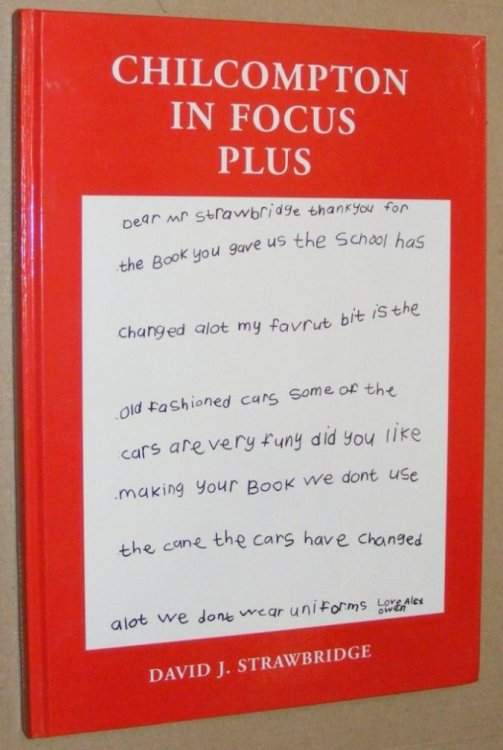 CHILCOMPTON
IN FOCUS
PLUS
Dear mr strawbridge thankyou for
the Book you gave us the School has
changed alot my favrut bit is the
old fashioned cars some of the
cars are very funy did you like
making your Book we dont use
the cane the cars have changed
alot we dont wear uniforms Love Alex
owen
DAVID J. STRAWBRIDGE